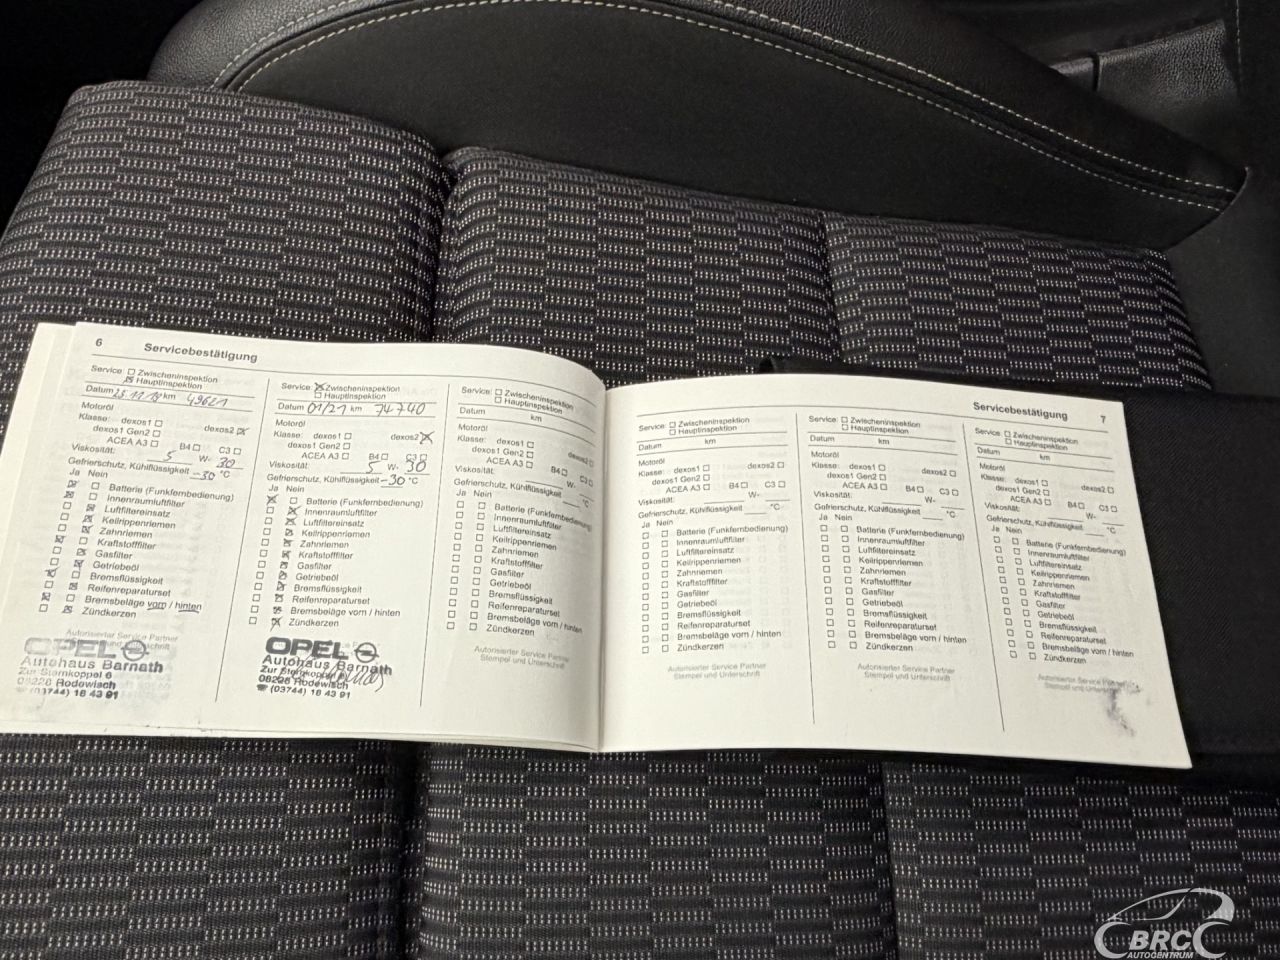 6 Servicebestätigung
Service: Zwischeninspektion
Hauptinspektion
Datum 25.11.19 km 49621
Motoröl
Klasse: dexos1 dexos2
dexos1 Gen2
ACEA A3 B4 C3
Viskosität: 5 W- 30
Gefrierschutz, Kühlflüssigkeit -30 °C
Ja Nein
Batterie (Funkfernbedienung)
Innenraumluftfilter
Luftfiltereinsatz
Keilrippenriemen
Zahnriemen
Kraftstofffilter
Gasfilter
Getriebeöl
Bremsflüssigkeit
Reifenreparaturset
Bremsbeläge vorn / hinten
Zündkerzen
Autorisierter Service Partner
OPEL
Autohaus Barnath
Zur Sternkoppel 6
08228 Rodewisch
(03744) 18 43 91
Service: Zwischeninspektion
Hauptinspektion
Datum 01/21 km 74740
Motoröl
Klasse: dexos1 dexos2
dexos1 Gen2
ACEA A3 B4 C3
Viskosität: 5 W- 30
Gefrierschutz, Kühlflüssigkeit -30 °C
Ja Nein
Batterie (Funkfernbedienung)
Innenraumluftfilter
Luftfiltereinsatz
Keilrippenriemen
Zahnriemen
Kraftstofffilter
Gasfilter
Getriebeöl
Bremsflüssigkeit
Reifenreparaturset
Bremsbeläge vorn / hinten
Zündkerzen
OPEL
Autohaus Barnath
Zur Sternkoppel
08228 Rodewisch
(03744) 18 43 91
Service: Zwischeninspektion
Hauptinspektion
Datum km
Motoröl
Klasse: dexos1 dexos2
dexos1 Gen2
ACEA A3 B4 C3
Viskosität: W-
Gefrierschutz, Kühlflüssigkeit °C
Ja Nein
Batterie (Funkfernbedienung)
Innenraumluftfilter
Luftfiltereinsatz
Keilrippenriemen
Zahnriemen
Kraftstofffilter
Gasfilter
Getriebeöl
Bremsflüssigkeit
Reifenreparaturset
Bremsbeläge vorn / hinten
Zündkerzen
Autorisierter Service Partner
Stempel und Unterschrift
Servicebestätigung 7
Service: Zwischeninspektion
Hauptinspektion
Datum km
Motoröl
Klasse: dexos1 dexos2
dexos1 Gen2
ACEA A3 B4 C3
Viskosität: W-
Gefrierschutz, Kühlflüssigkeit °C
Ja Nein
Batterie (Funkfernbedienung)
Innenraumluftfilter
Luftfiltereinsatz
Keilrippenriemen
Zahnriemen
Kraftstofffilter
Gasfilter
Getriebeöl
Bremsflüssigkeit
Reifenreparaturset
Bremsbeläge vorn / hinten
Zündkerzen
Autorisierter Service Partner
Stempel und Unterschrift
Service: Zwischeninspektion
Hauptinspektion
Datum km
Motoröl
Klasse: dexos1 dexos2
dexos1 Gen2
ACEA A3 B4 C3
Viskosität: W-
Gefrierschutz, Kühlflüssigkeit °C
Ja Nein
Batterie (Funkfernbedienung)
Innenraumluftfilter
Luftfiltereinsatz
Keilrippenriemen
Zahnriemen
Kraftstofffilter
Gasfilter
Getriebeöl
Bremsflüssigkeit
Reifenreparaturset
Bremsbeläge vorn / hinten
Zündkerzen
Autorisierter Service Partner
Stempel und Unterschrift
Service: Zwischeninspektion
Hauptinspektion
Datum km
Motoröl
Klasse: dexos1 dexos2
dexos1 Gen2
ACEA A3 B4 C3
Viskosität: W-
Gefrierschutz, Kühlflüssigkeit °C
Ja Nein
Batterie (Funkfernbedienung)
Innenraumluftfilter
Luftfiltereinsatz
Keilrippenriemen
Zahnriemen
Kraftstofffilter
Gasfilter
Getriebeöl
Bremsflüssigkeit
Reifenreparaturset
Bremsbeläge vorn / hinten
Zündkerzen
Autorisierter Service Partner
Stempel und Unterschrift
BRC
AUTOCENTRUM